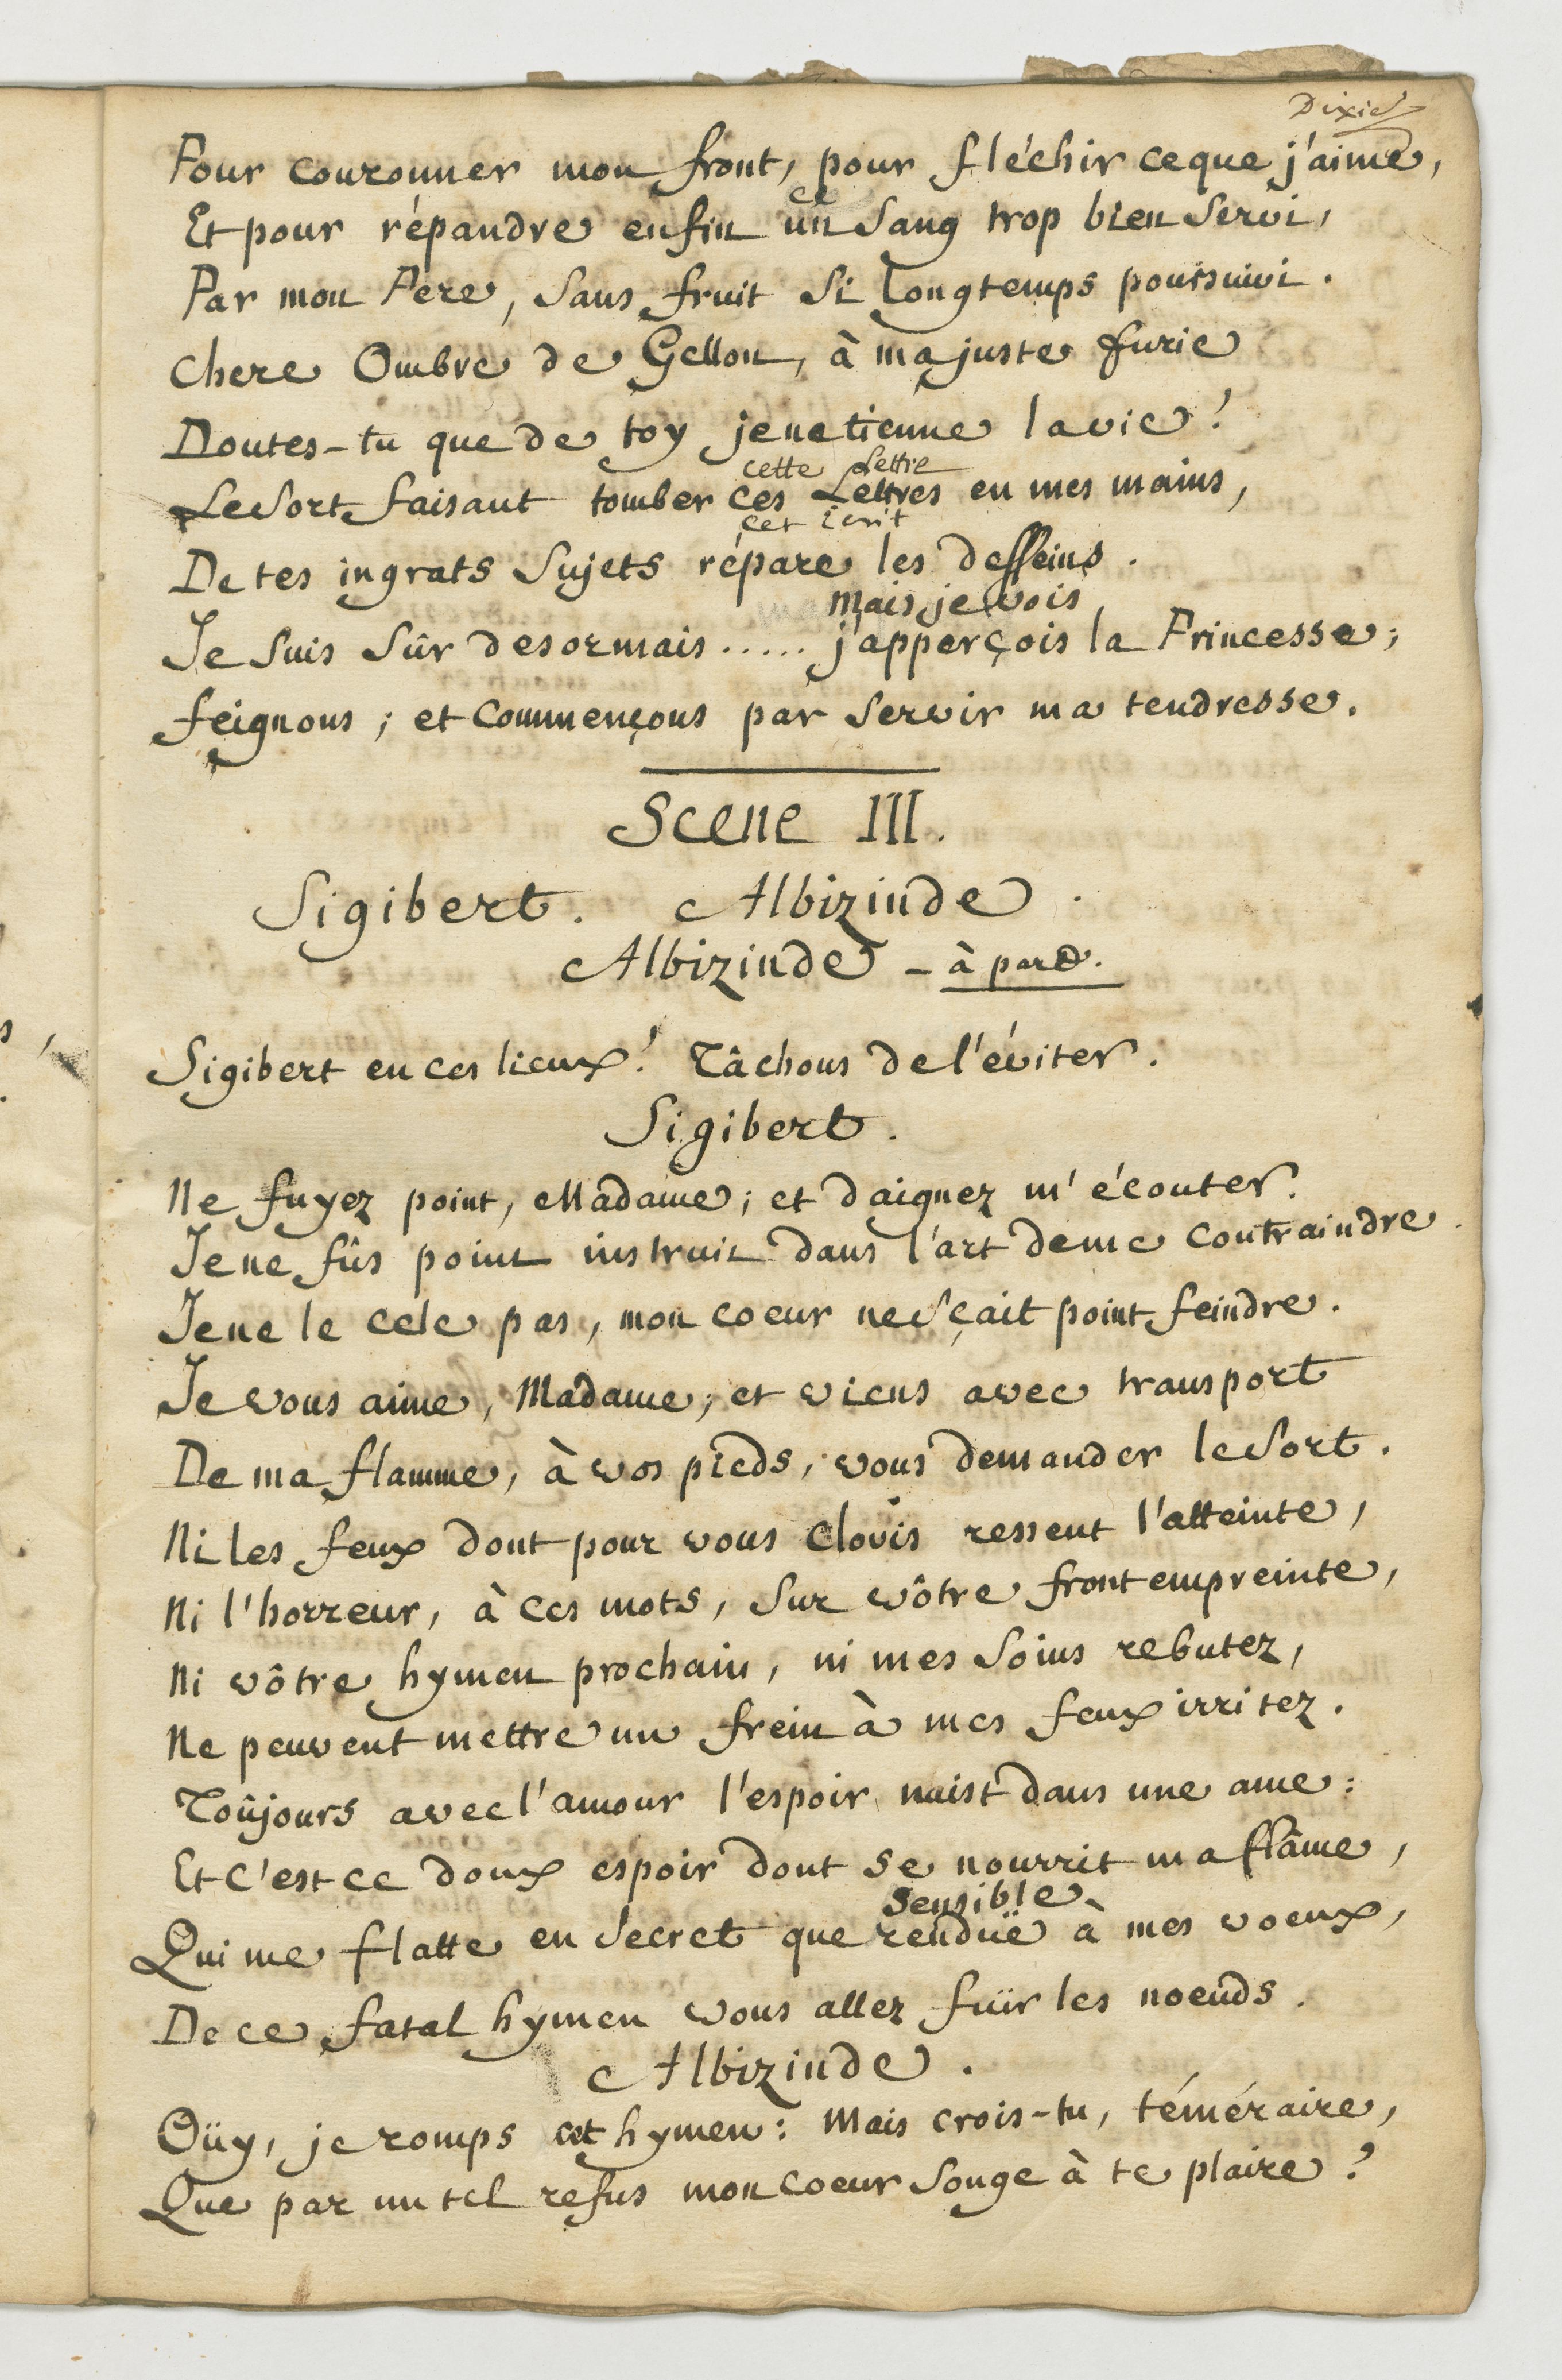 Dixie
Pour couronner mon front, pour fléchir ce que j'aime,
ce
Et pour répandre enfin un Sang trop bien Servi,
Par mon Pere, Sans fruit Si longtemps poursuivi.
Chere Ombre de Gellon, à ma juste furie
Doutes-tu que de toy je ne tienne la vie!
cette Lettre
Le Sort faisant tomber ces Lettres en mes mains,
cet écrit
De tes ingrats Sujets répare les desseins.
Mais je vois
Je Suis Sûr desormais ..... j'apperçois la Princesse;
feignons; et Commençons par Servir ma tendresse.
Scene III.
Sigibert. Albizinde.
Albizinde - à part.
Sigibert en ces lieux! Tâchons de l'éviter.
Sigibert.
Ne fuyez point, Madame; et daignez m'écouter.
Je ne fûs point instruit dans l'art de me contraindre.
Je ne le cele pas, mon coeur ne Sçait point feindre.
Je vous aime, Madame; et viens avec transport
De ma flamme, à vos pieds, vous demander le Sort.
Ni les feux dont pour vous Clovis ressent l'atteinte,
Ni l'horreur, à ces mots, Sur vôtre front empreinte,
Ni vôtre hymen prochain, ni mes Soins rebutez,
Ne peuvent mettre un frein à mes feux irritez.
Toûjours avec l'amour l'espoir naist dans une ame:
Et c'est ce doux espoir dont se nourrit ma flâme,
Sensible
Qui me flatte en Secret que renduë à mes voeux,
De ce fatal hymen vous allez fuïr les noeuds.
Albizinde.
Oüy, je romps cet hymen: Mais crois-tu, téméraire,
Que par un tel refus mon Coeur Songe à te plaire?